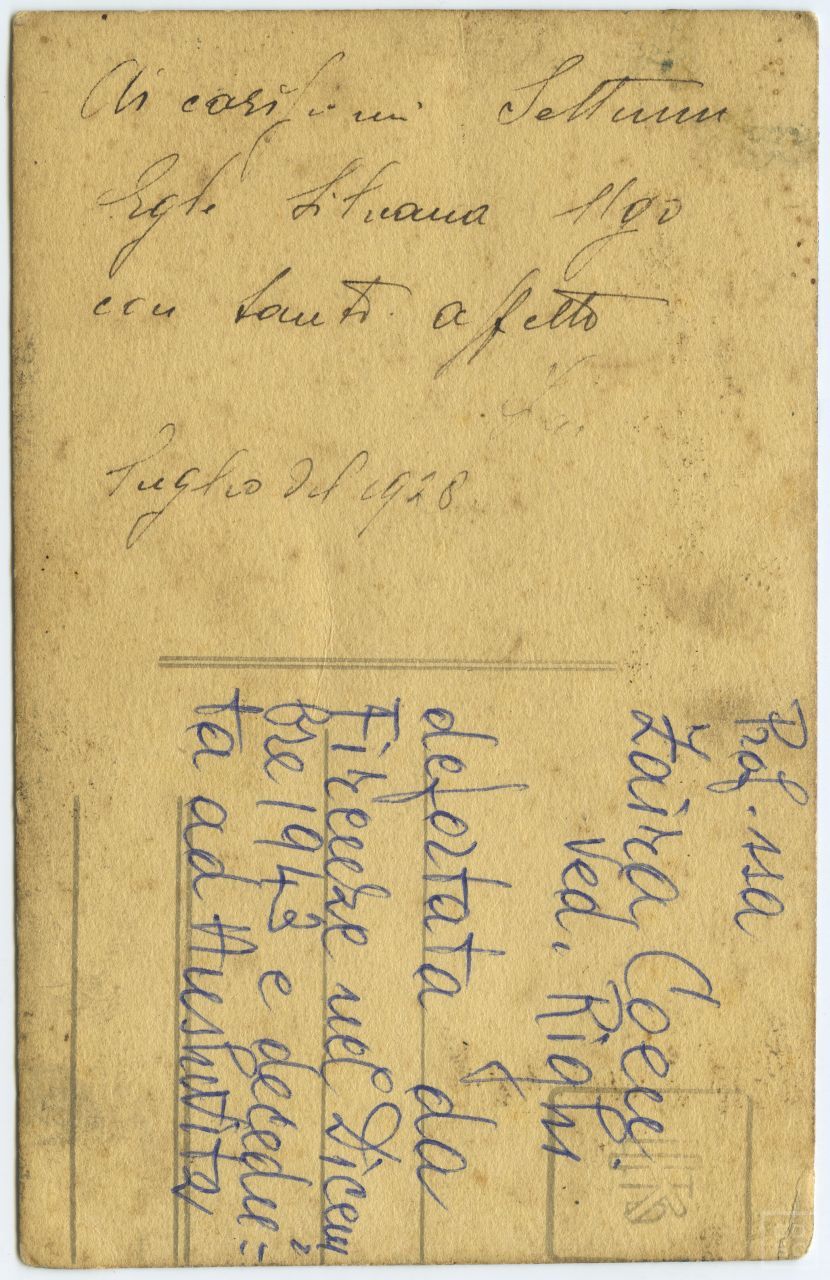 Ai carissimi Settimio
Egle Silvana Ugo
con tanto affetto
Luglio del 1928
Prof.ssa
Zaira Coen
ved. Righi
deportata da
Firenze nel Dicem
bre 1943 e decedu=
ta ad Aushwitz